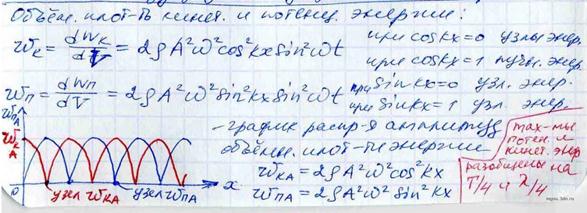 Объём. плот-ть кинет. и потенц. энергии:
w_к = dW_к/dV = 2ρA²ω²cos²kx sin²ωt при coskx=0 узлы энер.
при coskx=1 пучн. энер.
w_п = dW_п/dV = 2ρA²ω²sin²kx sin²ωt при sinkx=0 узл. энер.
при sinkx=1 узл. энер.
w_пА
w_кА
- график распр-я амплитуд
объёмн. плот-ти энергии
w_кА = 2ρA²ω²cos²kx
w_пА = 2ρA²ω²sin²kx
max-мы
потен. и
кинет. энер
разобщены на
T/4 и λ/4
0 узел w_кА узел w_пА x